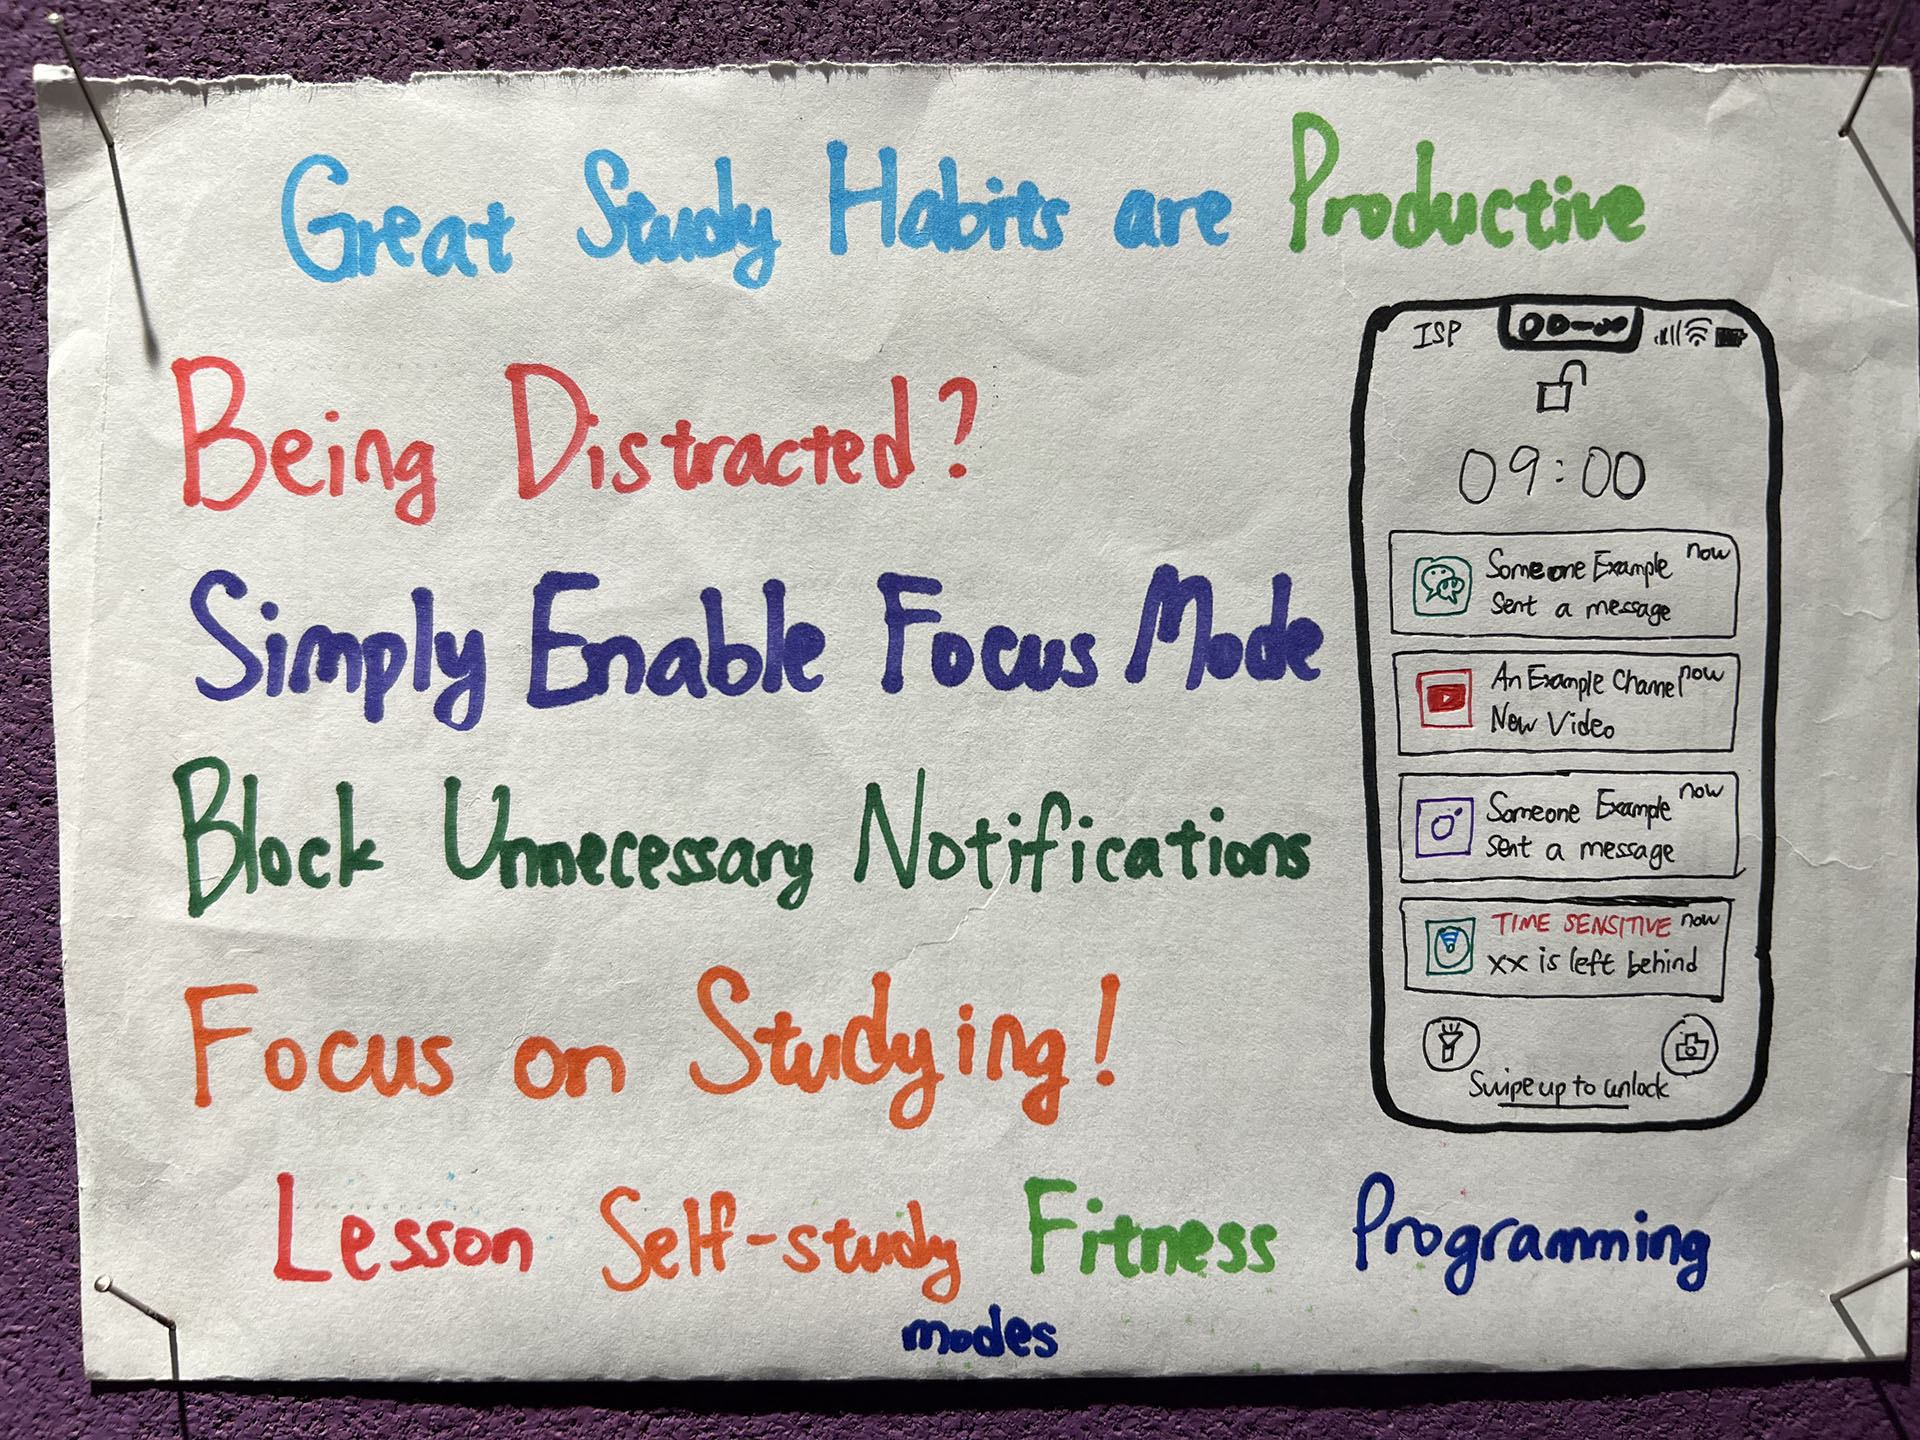 Great Study Habits are Productive
Being Distracted?
Simply Enable Focus Mode
Block Unnecessary Notifications
Focus on Studying!
ISP
09:00
Someone Example now
Sent a message
An Example Channel now
New Video
Someone Example now
Sent a message
TIME SENSITIVE now
xx is left behind
Swipe up to unlock
Lesson Self-study Fitness Programming
modes